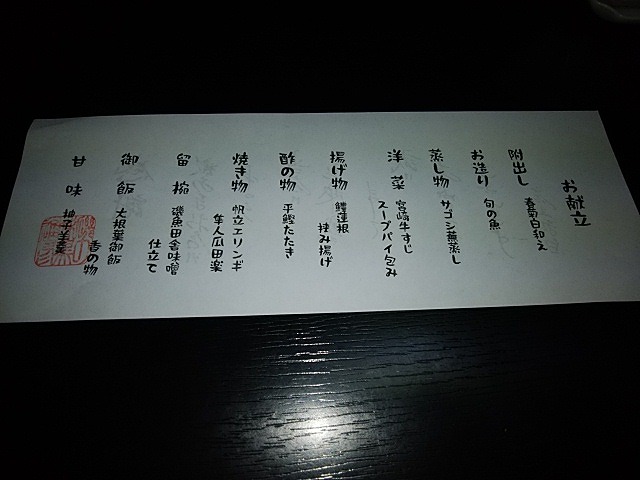 お献立
附出し 春菊白和え
お造り 旬の魚
蒸し物 サゴシ蕪蒸し
洋菜 宮崎牛すじ
スープパイ包み
揚げ物 鱧蓮根
挟み揚げ
酢の物 平鰹たたき
焼き物 帆立エリンギ
隼人瓜田楽
留椀 磯魚田舎味噌
仕立て
御飯 大根葉御飯
香の物
甘味 柚子